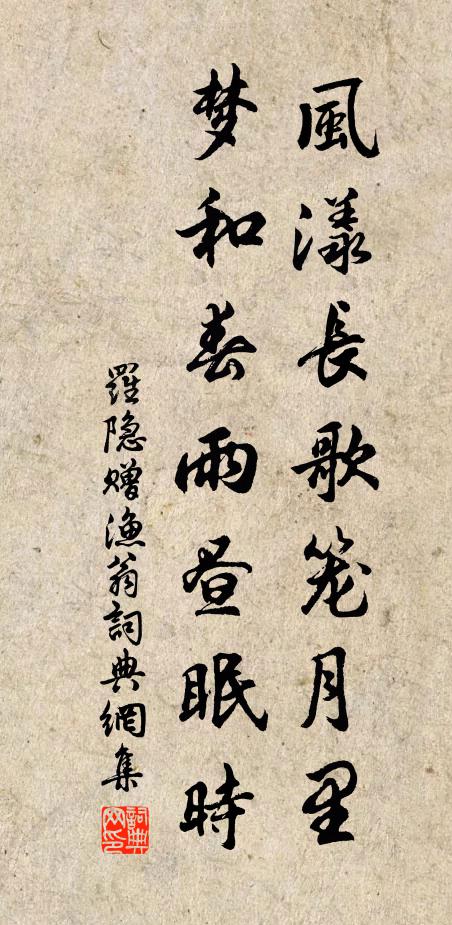 風漾長歌笼月里
梦和春雨昼眠時
羅隐赠漁翁詞典網集
詞典网印